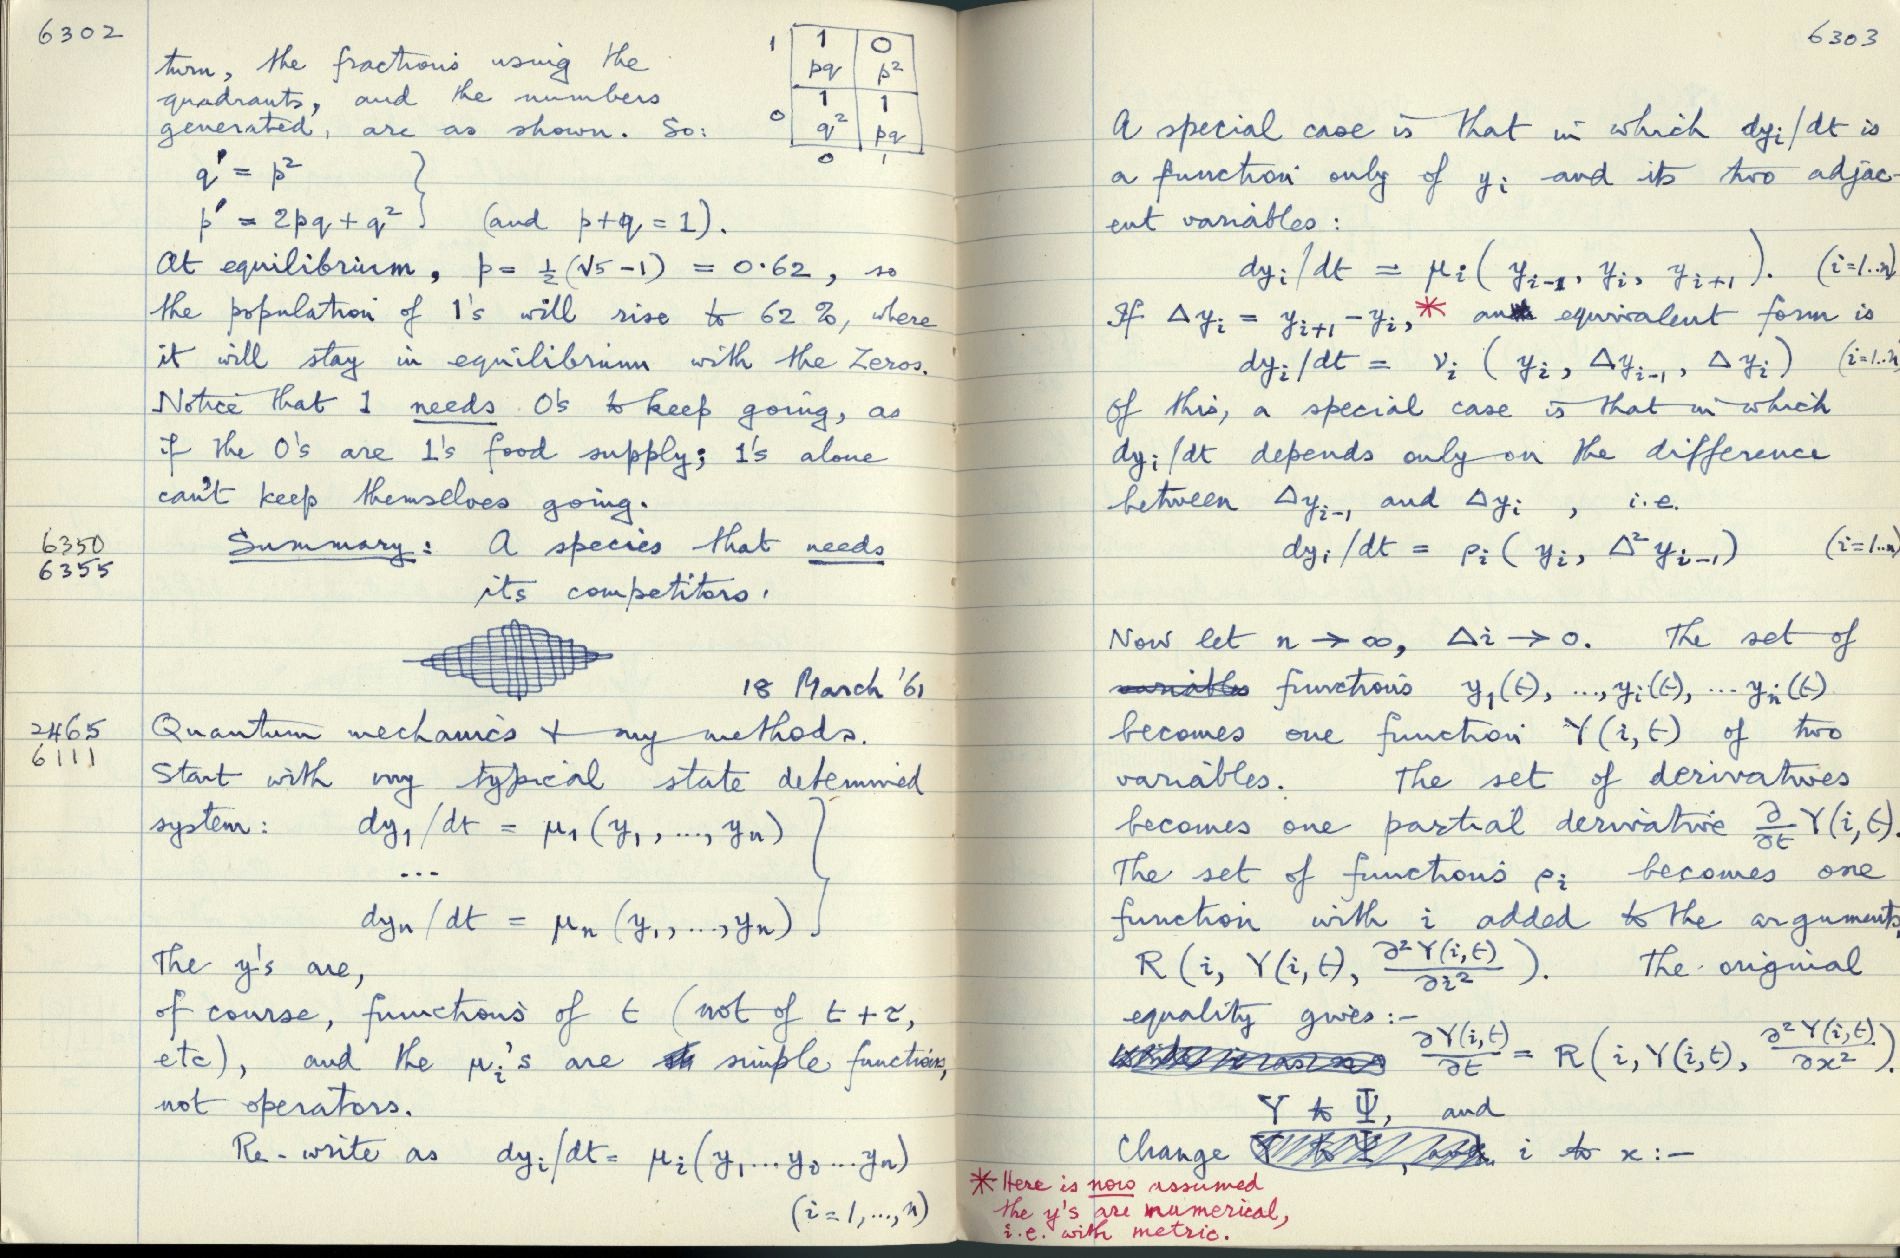 6302
turn, the fractions using the
quadrants, and the numbers
generated, are as shown. So:
1 1 0
pq p²
0 1 1
q² pq
0 1
q' = p²
p' = 2pq + q² } (and p+q = 1).
At equilibrium, p = ½(√5 -1) = 0·62, so
the population of 1's will rise to 62 %, where
it will stay in equilibrium with the Zeros.
Notice that 1 needs 0's to keep going, as
if the 0's are 1's food supply; 1's alone
can't keep themselves going.
6350
6355
Summary: A species that needs
its competitors.
18 March '61
2465
6111
Quantum mechanics & my methods.
Start with my typical state determined
system: dy₁/dt = μ₁(y₁, ..., yₙ)
...
dyₙ/dt = μₙ(y₁, ..., yₙ) }
The y's are,
of course, functions of t (not of t + τ,
etc), and the μᵢ's are simple functions,
not operators.
Re-write as dyᵢ/dt = μᵢ(y₁...yᵢ...yₙ)
(i = 1, ..., n)
6303
A special case is that in which dyᵢ/dt is
a function only of yᵢ and its two adjac-
ent variables:
dyᵢ/dt = μᵢ(yᵢ₋₁, yᵢ, yᵢ₊₁). (i=1..n)
If Δyᵢ = yᵢ₊₁ - yᵢ,* an equivalent form is
dyᵢ/dt = νᵢ(yᵢ, Δyᵢ₋₁, Δyᵢ) (i=1..n)
Of this, a special case is that in which
dyᵢ/dt depends only on the difference
between Δyᵢ₋₁ and Δyᵢ , i.e.
dyᵢ/dt = ρᵢ(yᵢ, Δ²yᵢ₋₁) (i=1..n)
Now let n → ∞, Δi → 0. The set of
variables functions y₁(t), ..., yᵢ(t), ... yₙ(t)
becomes one function Y(i,t) of two
variables. The set of derivatives
becomes one partial derivative ∂/∂t Y(i,t).
The set of functions ρᵢ becomes one
function with i added to the arguments,
R(i, Y(i,t), ∂²Y(i,t)/∂i²). The original
equality gives:-
∂Y(i,t)/∂t = R(i, Y(i,t), ∂²Y(i,t)/∂x²).
Y to Ψ, and
Change i to x:-
* Here is now assumed
the y's are numerical,
i.e. with metric.